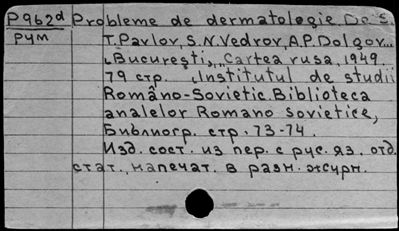 P962d Probleme de dermatologie De S.
Рум T. Pavlov, S.N. Vedrov, A.P. Dolgov...
București, „Cartea rusa, 1949.
79 стр. „Institutul de studii
Româno-Sovietic. Biblioteca
analelor Romano sovietice„
Библиогр. стр. 73-74.
Изд. сост. из пер. с рус. яз. отд.
стат., напечат. в разн. журн.